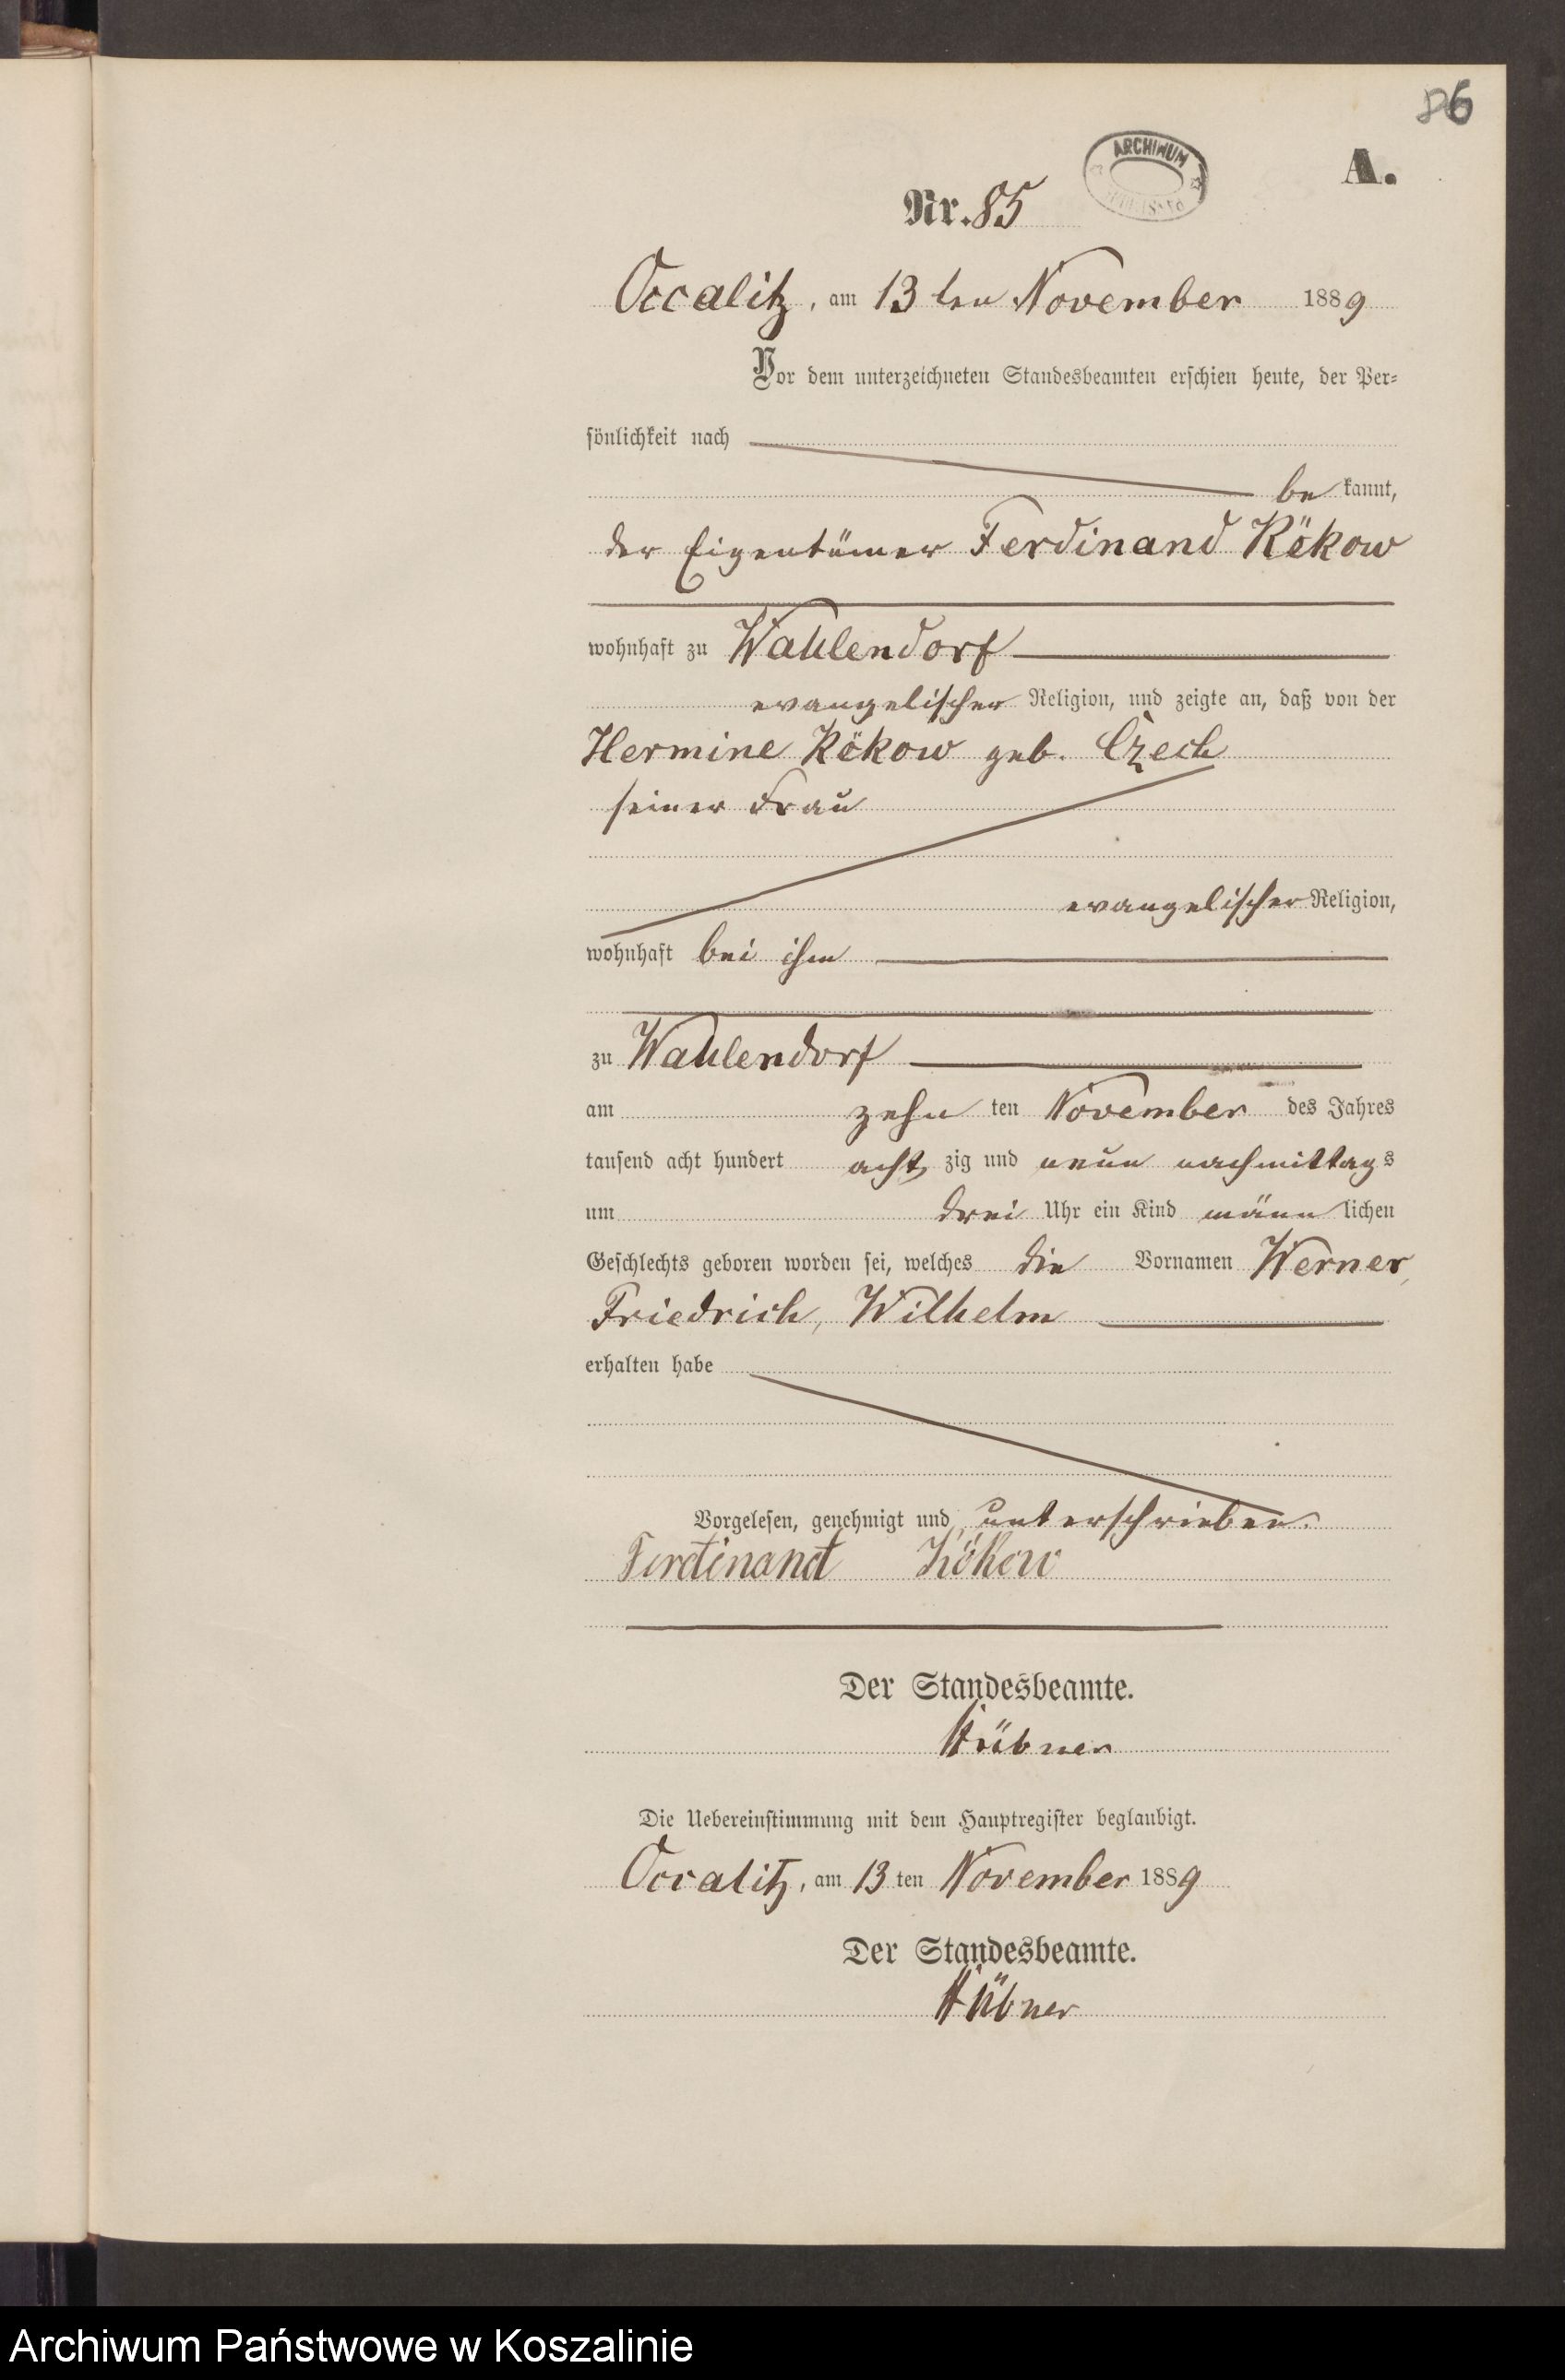 86
ARCHIWUM
A.
Nr. 85
Occalitz, am 13ten November 1889
Vor dem unterzeichneten Standesbeamten erschien heute, der Per-
sönlichkeit nach
be kannt,
der Eigentümer Ferdinand Kökow
wohnhaft zu Wahlendorf
evangelischer Religion, und zeigte an, daß von der
Hermine Kökow geb. Czech
seiner Frau
evangelischer Religion,
wohnhaft bei ihm
zu Wahlendorf
am zehn ten November des Jahres
tausend acht hundert acht zig und neun nachmittags
um drei Uhr ein Kind männ lichen
Geschlechts geboren worden sei, welches die Vornamen Werner,
Friedrich, Wilhelm
erhalten habe
Vorgelesen, genehmigt und unterschrieben.
Ferdinand Kökow
Der Standesbeamte.
Hübner
Die Uebereinstimmung mit dem Hauptregister beglaubigt.
Occalitz, am 13 ten November 1889
Der Standesbeamte.
Hübner
Archiwum Państwowe w Koszalinie